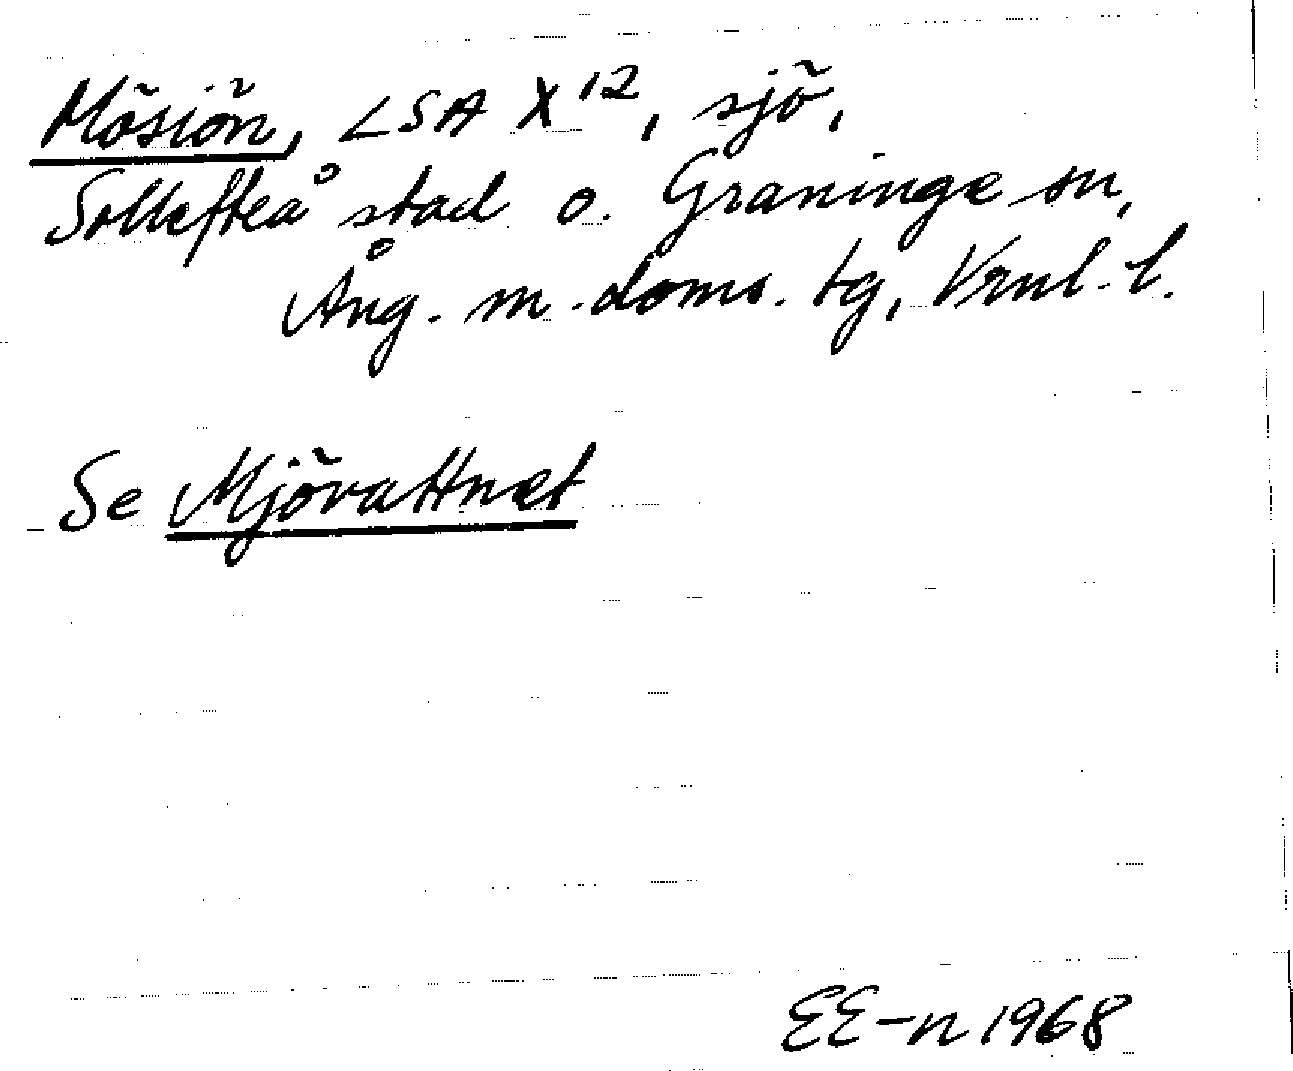 Mösiön, LSA X 12, sjö,
Sollefteå stad o. Graninge sn,
Ång. m. doms. tg, Vrnl. l.
Se Mjövattnet
EE-n 1968